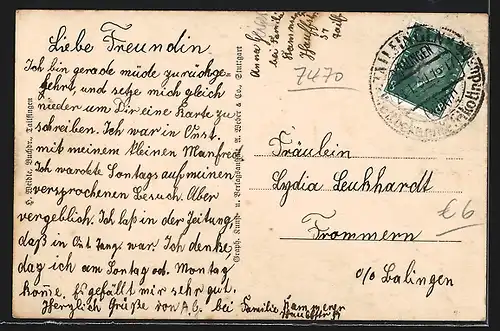 Liebe Freundin.
Ich bin gerade müde zurückge-
kehrt, und setze mich gleich
nieder um Dir eine Karte zu
schreiben. Ich war in
mit meinem kleinen Manfred
Ich wartete Sontags auf meinen
versprochenen Besuch. Aber
vergeblich. Ich laß in der Zeitung
daß in war. Ich denke
daß ich am Sontag od. Montag
komme. Es gefällt mir sehr gut.
Herzlich Grüße von A.G. bei Familie Kammerer
H. Wolde, Buchdr., Tailfingen
Graph. Kunst- u. Verlagsanstalt A. Weber & Co., Stuttgart
Anna
bei Familie
7470
TAILFINGEN
Fräulein
Lydia Leukhardt
Frommern
o/o Balingen
€6